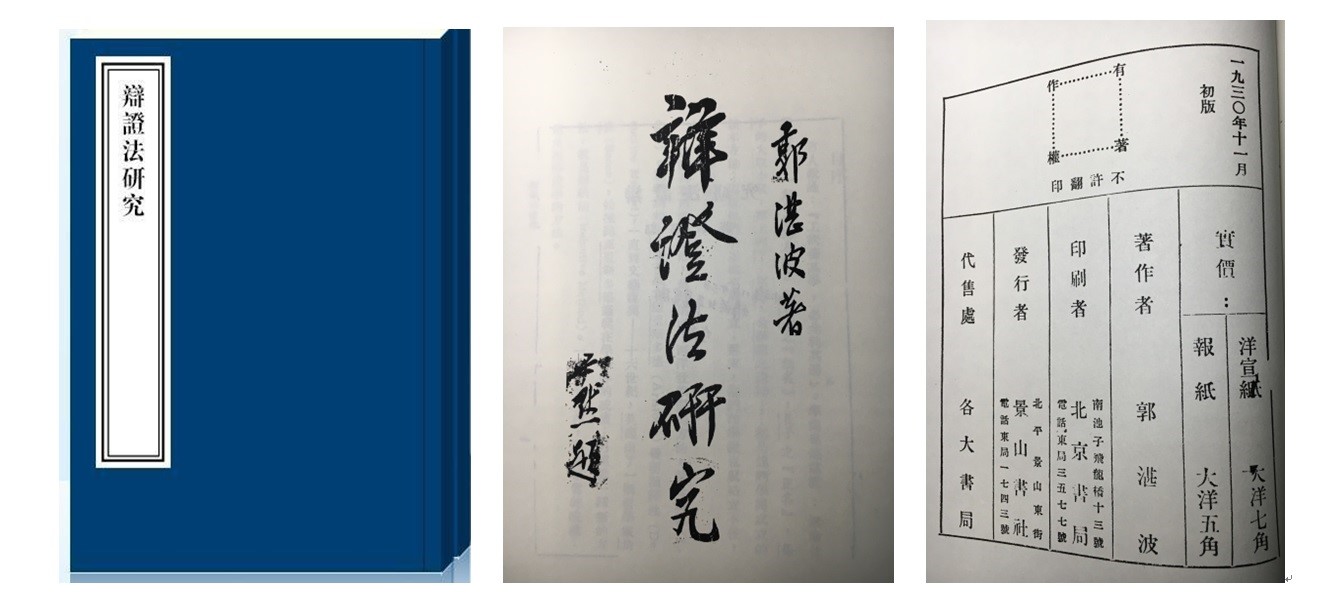 辯證法研究
郭湛波著
辯證法研究
尹默題
一九三〇年十一月
初版
有著作權
不許翻印
實價：
洋宣紙 大洋七角
報紙 大洋五角
著作者 郭湛波
印刷者
南池子飛龍橋十三號
北京書局
電話東局三五七七號
發行者
北平景山東街
景山書社
電話東局一七四三號
代售處 各大書局